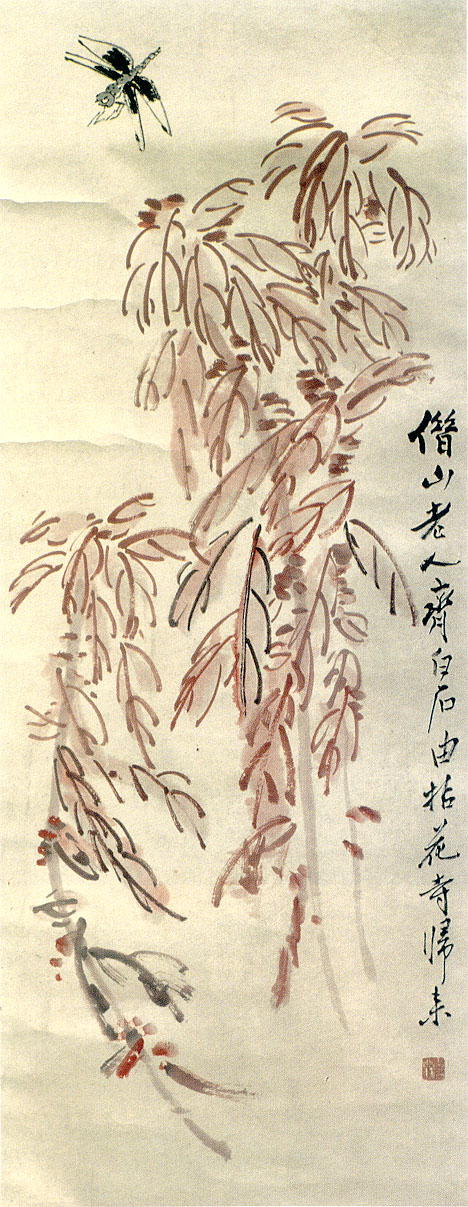 僣山老人齊白石由拈花寺歸來